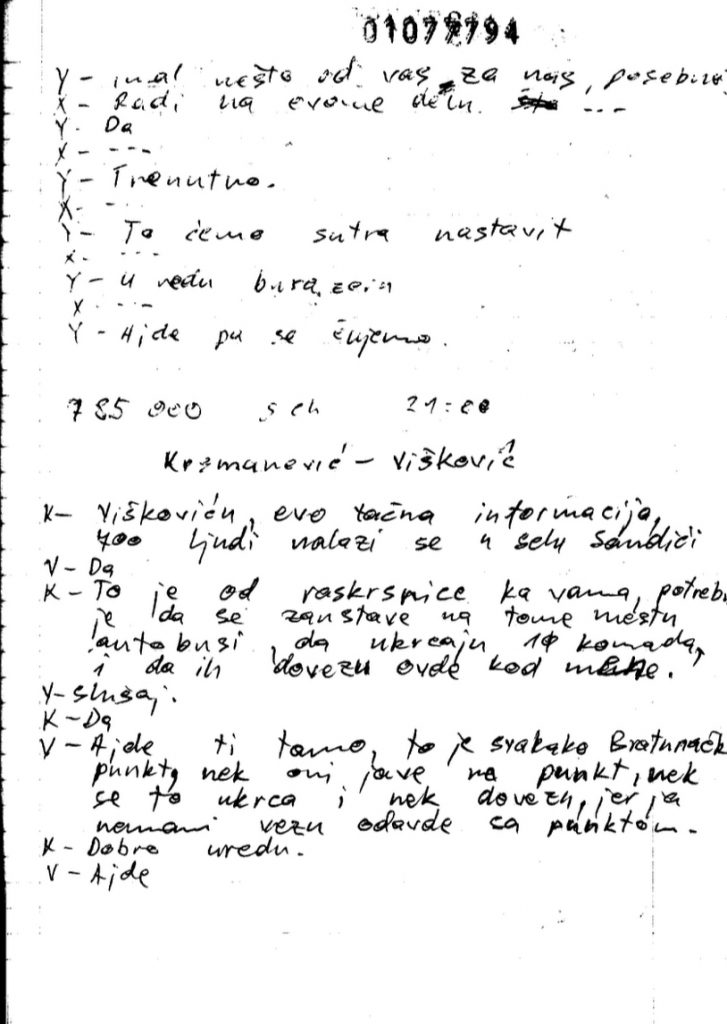 01077794
Y - imal nešto od vas za nas, posebno
X - Radi na ovome delu. ---
Y - Da
X - ---
Y - Trenutno.
X - -
Y - To ćemo sutra nastavit
X - ---
Y - U redu burazeru
X - ---
Y - Ajde pa se čujemo.
785 000 5 ch 21:00
Krsmanović - Višković
K - Viškoviću, evo tačna informacija,
700 ljudi nalazi se u selu Sandići
V - Da
K - To je od raskrsnice ka vama, potreb
je da se zaustave na tome mestu
autobusi, da ukrcaju 10 komada,
i da ih dovezu ovde kod mene.
V - Slušaj.
K - Da
V - Ajde ti tamo, to je svakako Bratunačk
punkt, nek oni jave na punkt, nek
se to ukrca i nek dovezu, jer ja
nemam vezu odavde sa punktom.
K - Dobro uredu.
V - Ajde